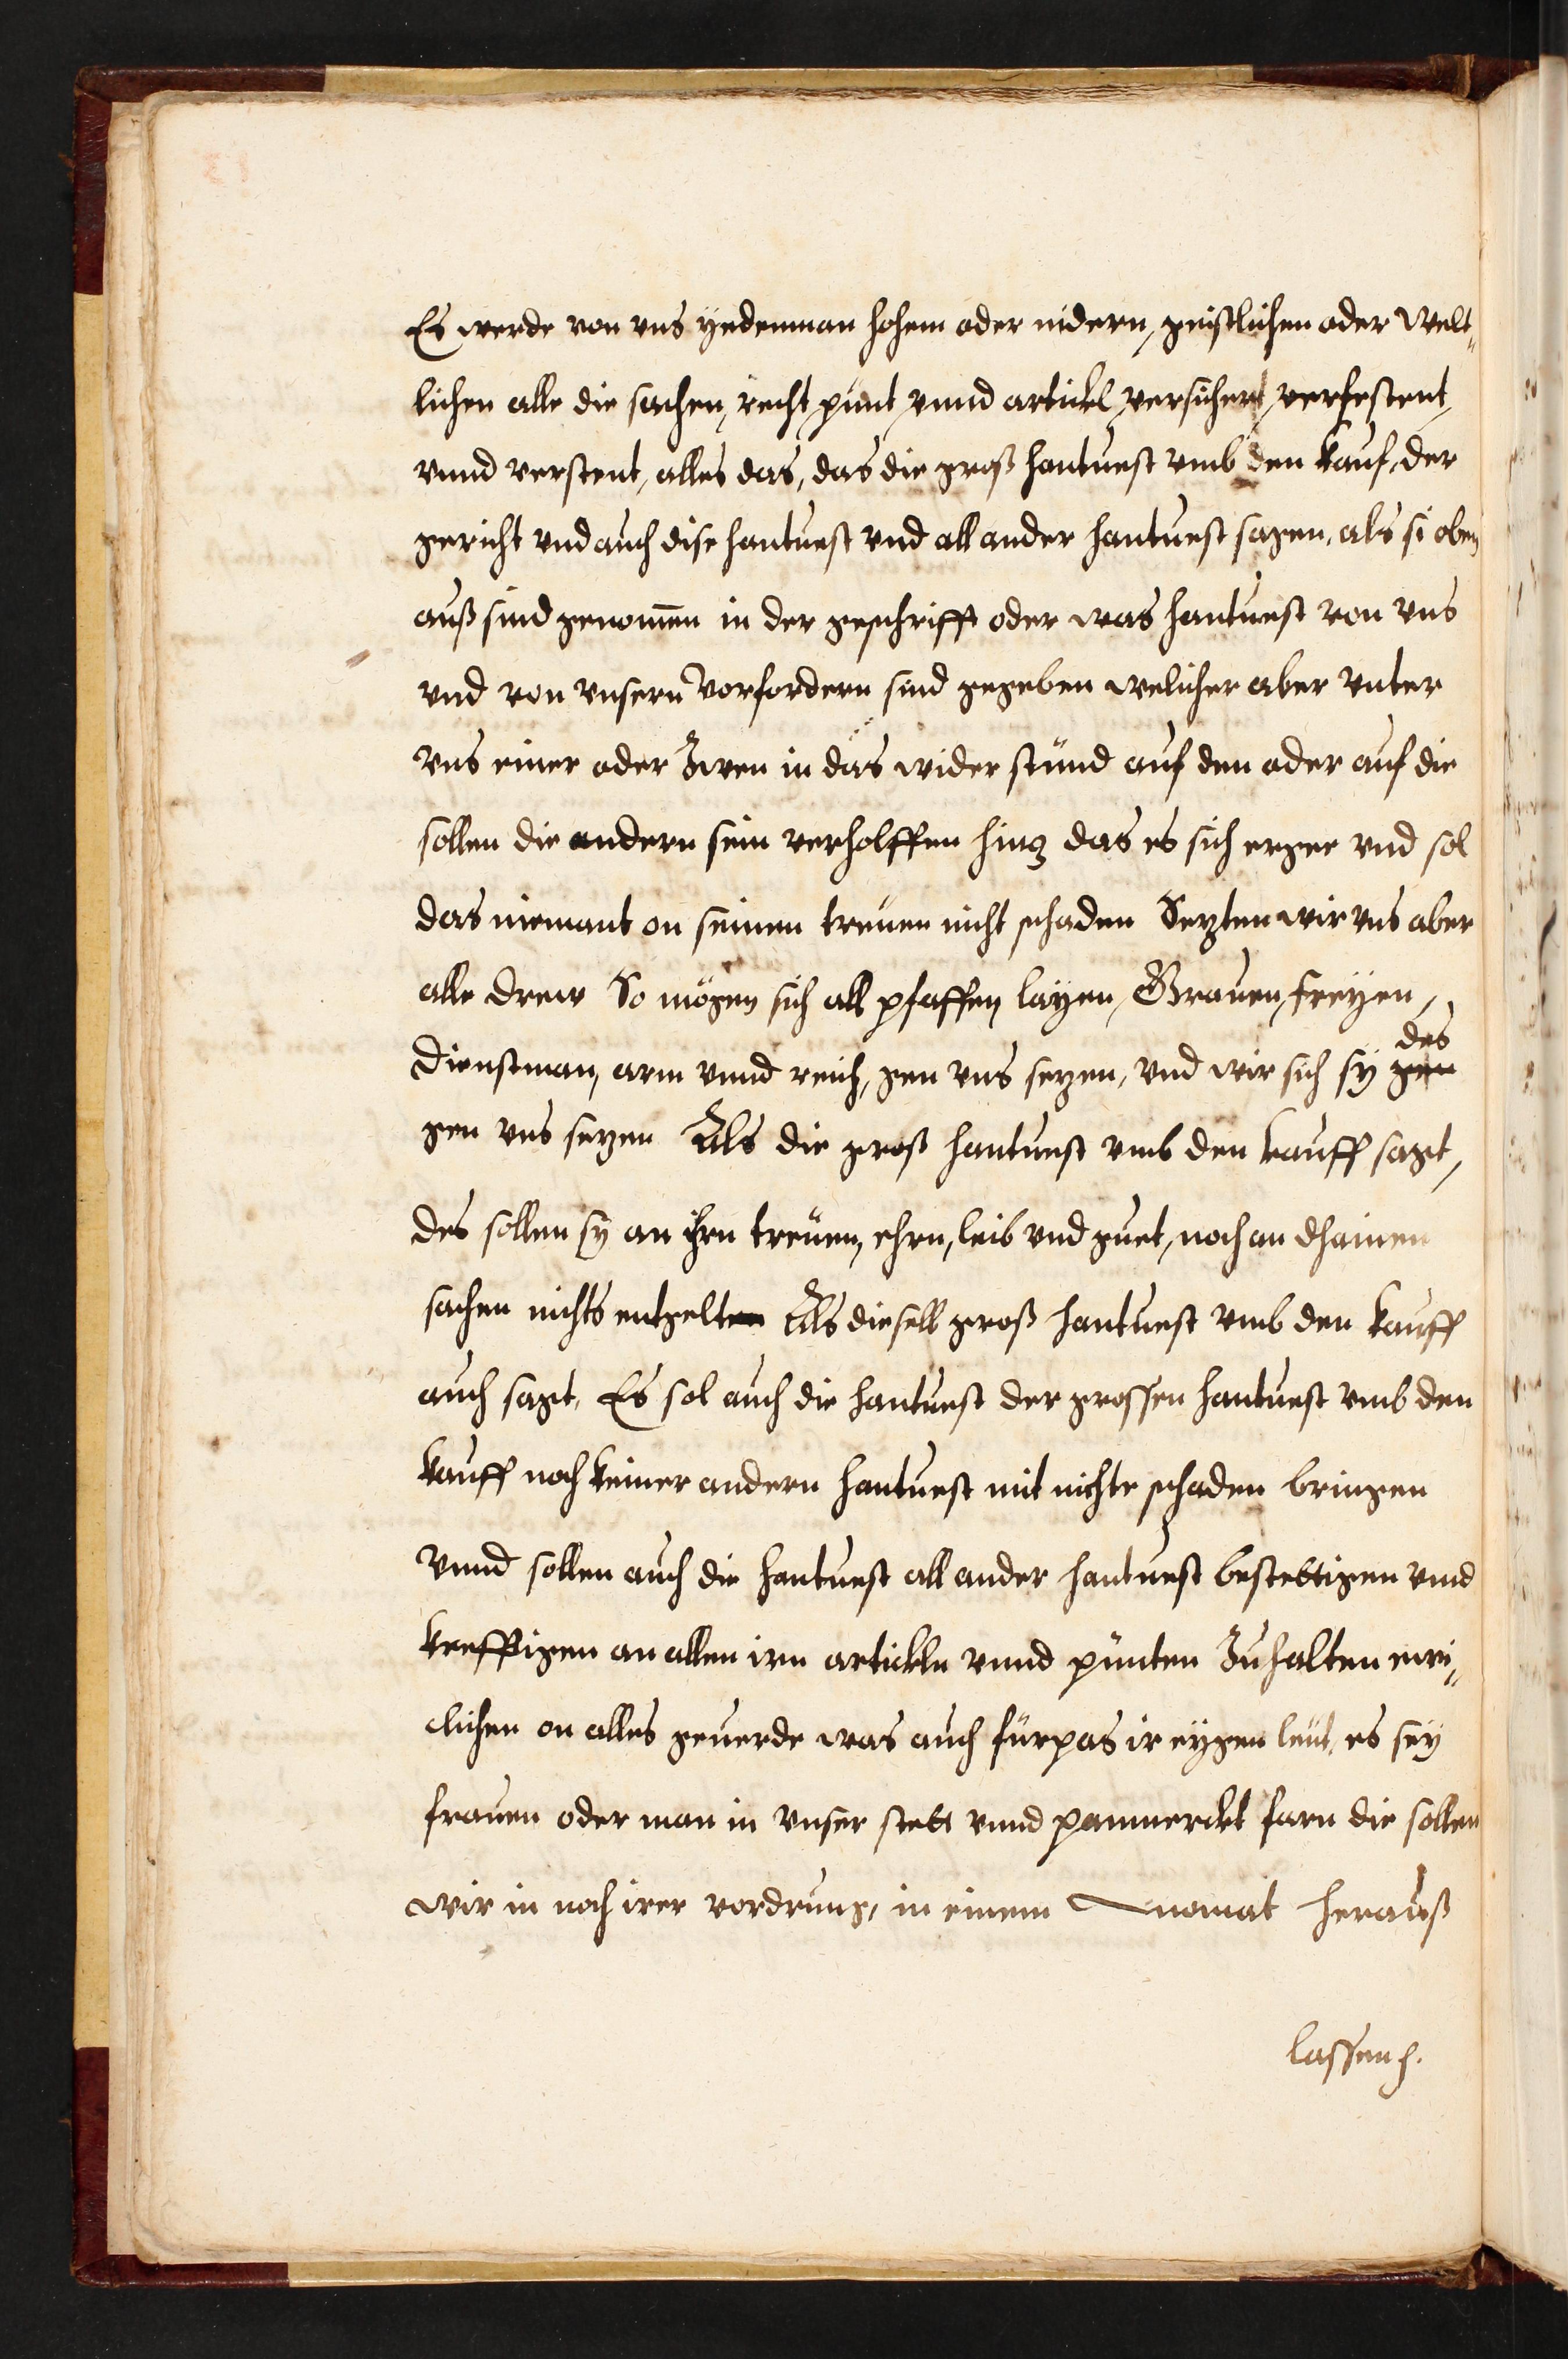 Es werde von vns yedenman hohem oder nidern, geistlichen oder welt„
lichen alle die sachen, recht punt vnnd artickl versichert, verfestent,
vnnd verstent, alles das, das die groß hantuest vmb den kauf, der
gericht vnd auch dise hantuest vnd all ander hantuest sagen, als si oben
auß sind genom̄en in der geschrifft oder was hantuest von vns
vnd von vnsern vorfordern sind gegeben welicher aber vnter
vns einer oder Zwen in das wider stünd auf den oder auf die
sollen die andern sein verholffen hinz das es sich ergee vnd sol
das niemant on seinen treuen nicht schaden Sezten wir vns aber
alle drew So mögen sich all pfaffen layen, Grauen, freyen,
dienstman, arm vnnd reich, gen vns sezen, vnd wir sich sy gen des
gen vns sezen Als die groß hantuest vmb den kauff sagt,
des sollen sy an ihrn treuen, ehrn, leib vnd guet, noch an dhainen
sachen nichts entgelten Als diesell groß hantuest vmb den kauff
auch sagt, Es sol auch die hantuest der grossen hantuest vmb den
kauff noch keiner andern hantuest mit nichte schaden bringen
vnnd sollen auch die hantuest all ander hantuest bestettigen vnnd
kreffigen an allen irn artickln vnnd punten Zuhalten ewi„
clichen on alles geuerde was auch fürpas ir eygen leut, es sey
frauen oder man in vnser stett vnnd panmerckt farn die sollen
wir in noch irer vordrung, in einem monat herauß
lassen